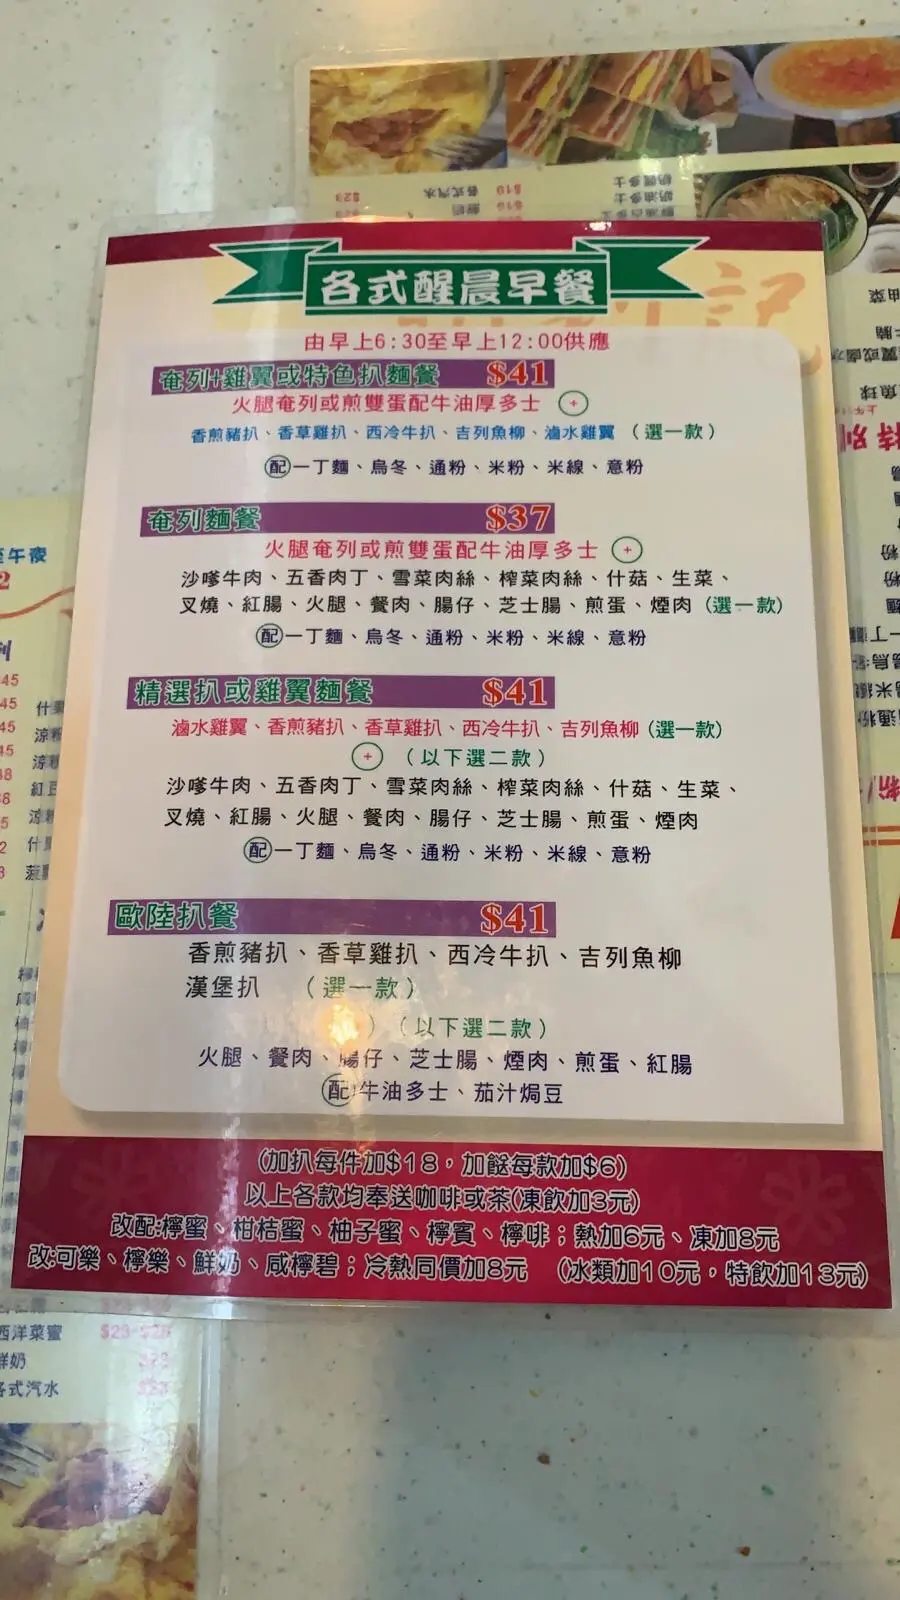 各式醒晨早餐
由早上6:30至早上12:00供應
奄列+雞翼或特色扒麵餐 $41
火腿奄列或煎雙蛋配牛油厚多士 +
香煎豬扒、香草雞扒、西冷牛扒、吉列魚柳、滷水雞翼 (選一款)
配一丁麵、烏冬、通粉、米粉、米線、意粉
奄列麵餐 $37
火腿奄列或煎雙蛋配牛油厚多士 +
沙嗲牛肉、五香肉丁、雪菜肉絲、榨菜肉絲、什菇、生菜、
叉燒、紅腸、火腿、餐肉、腸仔、芝士腸、煎蛋、煙肉 (選一款)
配一丁麵、烏冬、通粉、米粉、米線、意粉
精選扒或雞翼麵餐 $41
滷水雞翼、香煎豬扒、香草雞扒、西冷牛扒、吉列魚柳 (選一款)
+ (以下選二款)
沙嗲牛肉、五香肉丁、雪菜肉絲、榨菜肉絲、什菇、生菜、
叉燒、紅腸、火腿、餐肉、腸仔、芝士腸、煎蛋、煙肉
配一丁麵、烏冬、通粉、米粉、米線、意粉
歐陸扒餐 $41
香煎豬扒、香草雞扒、西冷牛扒、吉列魚柳
漢堡扒 (選一款)
(以下選二款)
火腿、餐肉、腸仔、芝士腸、煙肉、煎蛋、紅腸
配牛油多士、茄汁焗豆
(加扒每件加$18，加餸每款加$6)
以上各款均奉送咖啡或茶(凍飲加3元)
改配:檸蜜、柑桔蜜、柚子蜜、檸賓、檸啡；熱加6元、凍加8元
改:可樂、檸樂、鮮奶、咸檸碧；冷熱同價加8元 (冰類加10元，特飲加13元)
西洋菜蜜
鮮奶
各式汽水
各式汽水 $23
奶油多士 $16